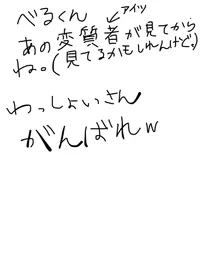 べるくん
アイツ
あの変質者が見てから
ね。(見てるかもしれんけど。)
わっしょいさん
がんばれw